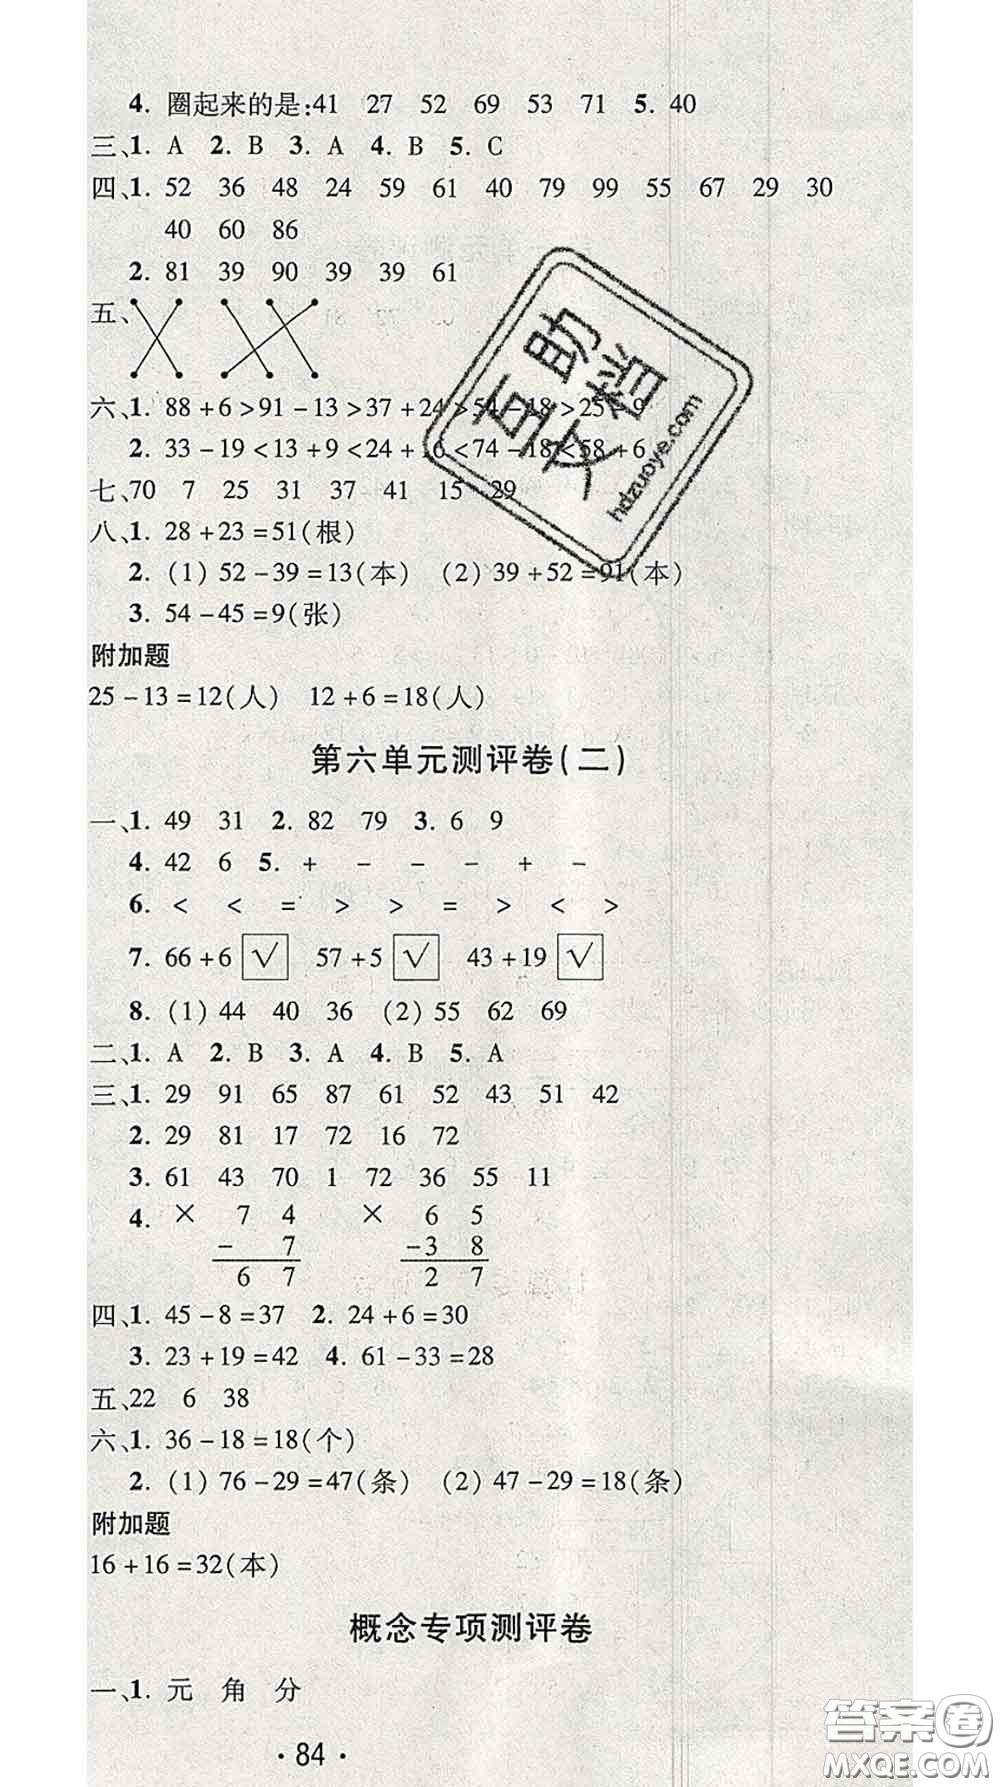 4. 圈起来的是:41 27 52 69 53 71 5. 40
三、1. A 2. B 3. A 4. B 5. C
四、1. 52 36 48 24 59 61 40 79 99 55 67 29 30
40 60 86
2. 81 39 90 39 39 61
五、
六、1. 88+6>91-13>37+24>54-18>25+9
2. 33-19<13+9<24+16<74-18<58+6
七、70 7 25 31 37 41 15 29
八、1. 28+23=51(根)
2. (1) 52-39=13(本) (2) 39+52=91(本)
3. 54-45=9(张)
附加题
25-13=12(人) 12+6=18(人)
第六单元测评卷(二)
一、1. 49 31 2. 82 79 3. 6 9
4. 42 6 5. + - - - + -
6. < < = > > = > < >
7. 66+6 √ 57+5 √ 43+19 √
8. (1) 44 40 36 (2) 55 62 69
二、1. A 2. B 3. A 4. B 5. A
三、1. 29 91 65 87 61 52 43 51 42
2. 29 81 17 72 16 72
3. 61 43 70 1 72 36 55 11
4. × 7 4 × 6 5
- 7 -3 8
6 7 2 7
四、1. 45-8=37 2. 24+6=30
3. 23+19=42 4. 61-33=28
五、22 6 38
六、1. 36-18=18(个)
2. (1) 76-29=47(条) (2) 47-29=18(条)
附加题
16+16=32(本)
概念专项测评卷
一、1. 元 角 分
· 84 ·
互助文档
hdzuoye.com
答案圈
MXQE.COM